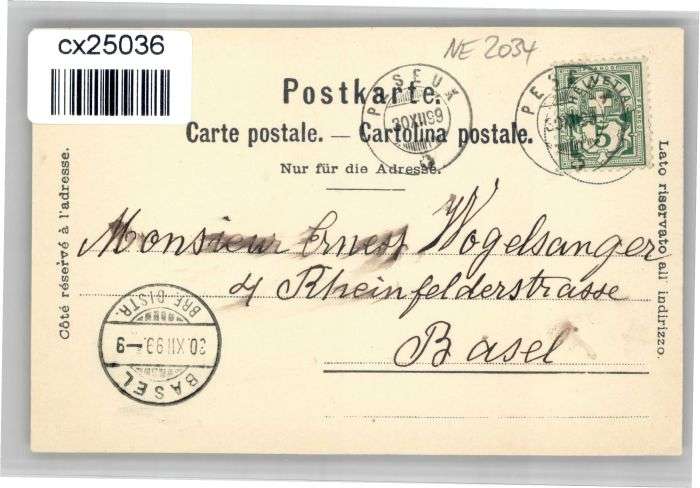 cx25036
NE 2034
Postkarte.
Carte postale. — Cartolina postale.
Nur für die Adresse.
Côté réservé à l'adresse.
Lato riservato all' indirizzo.
PESEUX
30 XII 99
PESEUX
HELVETIA
5
Monsieur Ernest Vogelsanger
4 Rheinfelderstrasse
Basel
BASEL
30.XII.99.-9
BRF. DISTR.